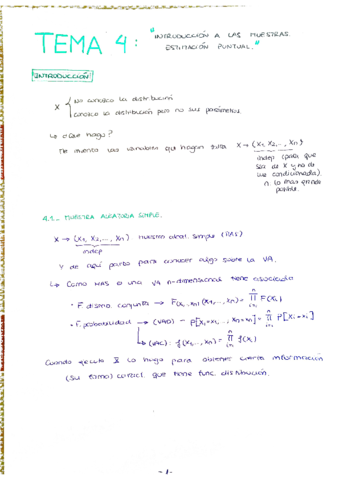 TEMA 4: "INTRODUCCIÓN A LAS MUESTRAS.
ESTIMACIÓN PUNTUAL."
INTRODUCCIÓN
X { No conozco la distribución
conozco la distribución pero no sus parámetros.
↳ ¿Que hago?
Me invento las variables que hagan falta X → (X₁, X₂, ..., Xn)
indep (para que
sea de X y no de
una condicionada).
n lo más grande
posible.
4.1.- MUESTRA ALEATORIA SIMPLE.
X → (X₁, X₂, ..., Xn) muestra aleat. simple (MAS)
indep
Y de aquí parto para conocer algo sobre la VA.
↳ Como MAS es una VA n-dimensional tiene asociada
· F distrib. conjunta → F(x₁,...,xn) (x₁, ..., xn) = ∏ F(xi)
· F. probabilidad → (VAD) - P[X₁=x₁, ..., Xn=xn] = ∏ P[Xi=xi]
↳ (VAC): f(x₁, ..., xn) = ∏ f(xi)
Cuando ejecuto X lo hago para obtener cierta información
(Su tamo) caract. que tiene func. distribución.
-1-